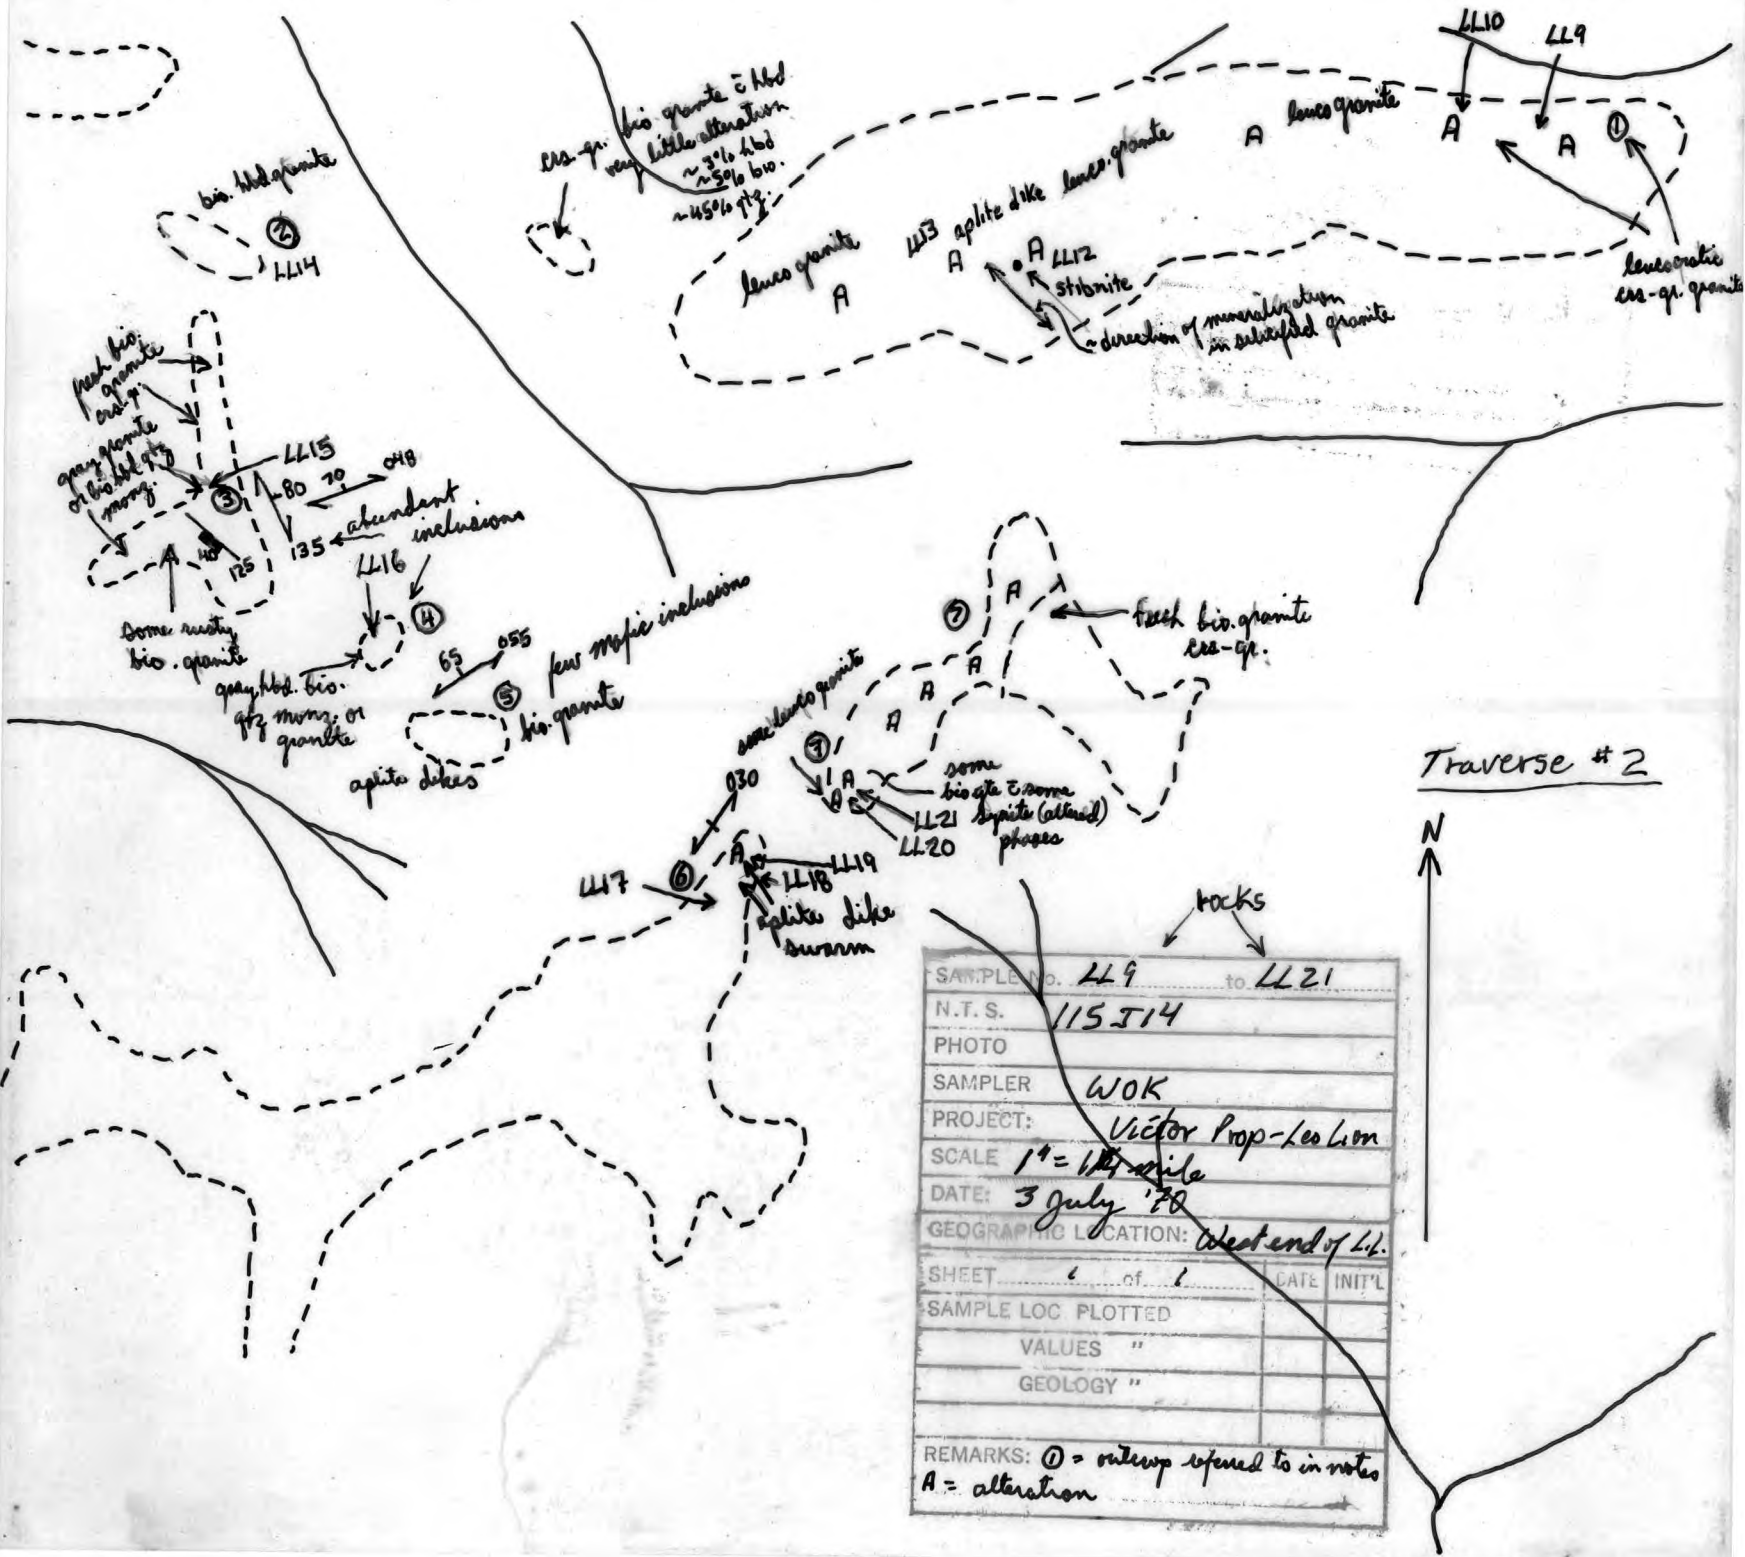 LL10
LL9
crs-gr. bio. granite c̄ hbd
very little alteration
~3% hbd
~5% bio.
~45% qtz.
leucogranite
A
A
A
①
bio. hbd. granite
②
LL14
leucogranite
A
LL13 aplite dike leuco.granite
A
A LL12
stibnite
~direction of mineralization
in silicified granite
leucocratic
crs-gr. granite
fresh bio.
granite
crs-gr.
gray granite
or bio. hbd. qtz
monz.
LL15
③
80
70
048
135
abundant
inclusions
A
40
125
LL16
④
some rusty
bio. granite
gray hbd. bio.
qtz monz. or
granite
65
055
few mafic inclusions
⑤
bio. granite
aplite dikes
⑦
A
fresh bio. granite
crs-gr.
A
A
A
some leuco granite
⑦
A
A
some
bio qte c̄ some
syenite (altered)
phases
LL21
LL20
030
A
⑥
LL17
LL19
LL18
aplite dike
swarm
Traverse #2
N
rocks
SAMPLE No. LL9 to LL21
N.T.S. 115J14
PHOTO
SAMPLER WOK
PROJECT: Victor Prop-Leo Lion
SCALE 1" = 1/4 mile
DATE: 3 July '70
GEOGRAPHIC LOCATION: West end of L.L.
SHEET 1 of 1 DATE INIT'L
SAMPLE LOC PLOTTED
VALUES "
GEOLOGY "
REMARKS: ① = outcrop referred to in notes
A = alteration